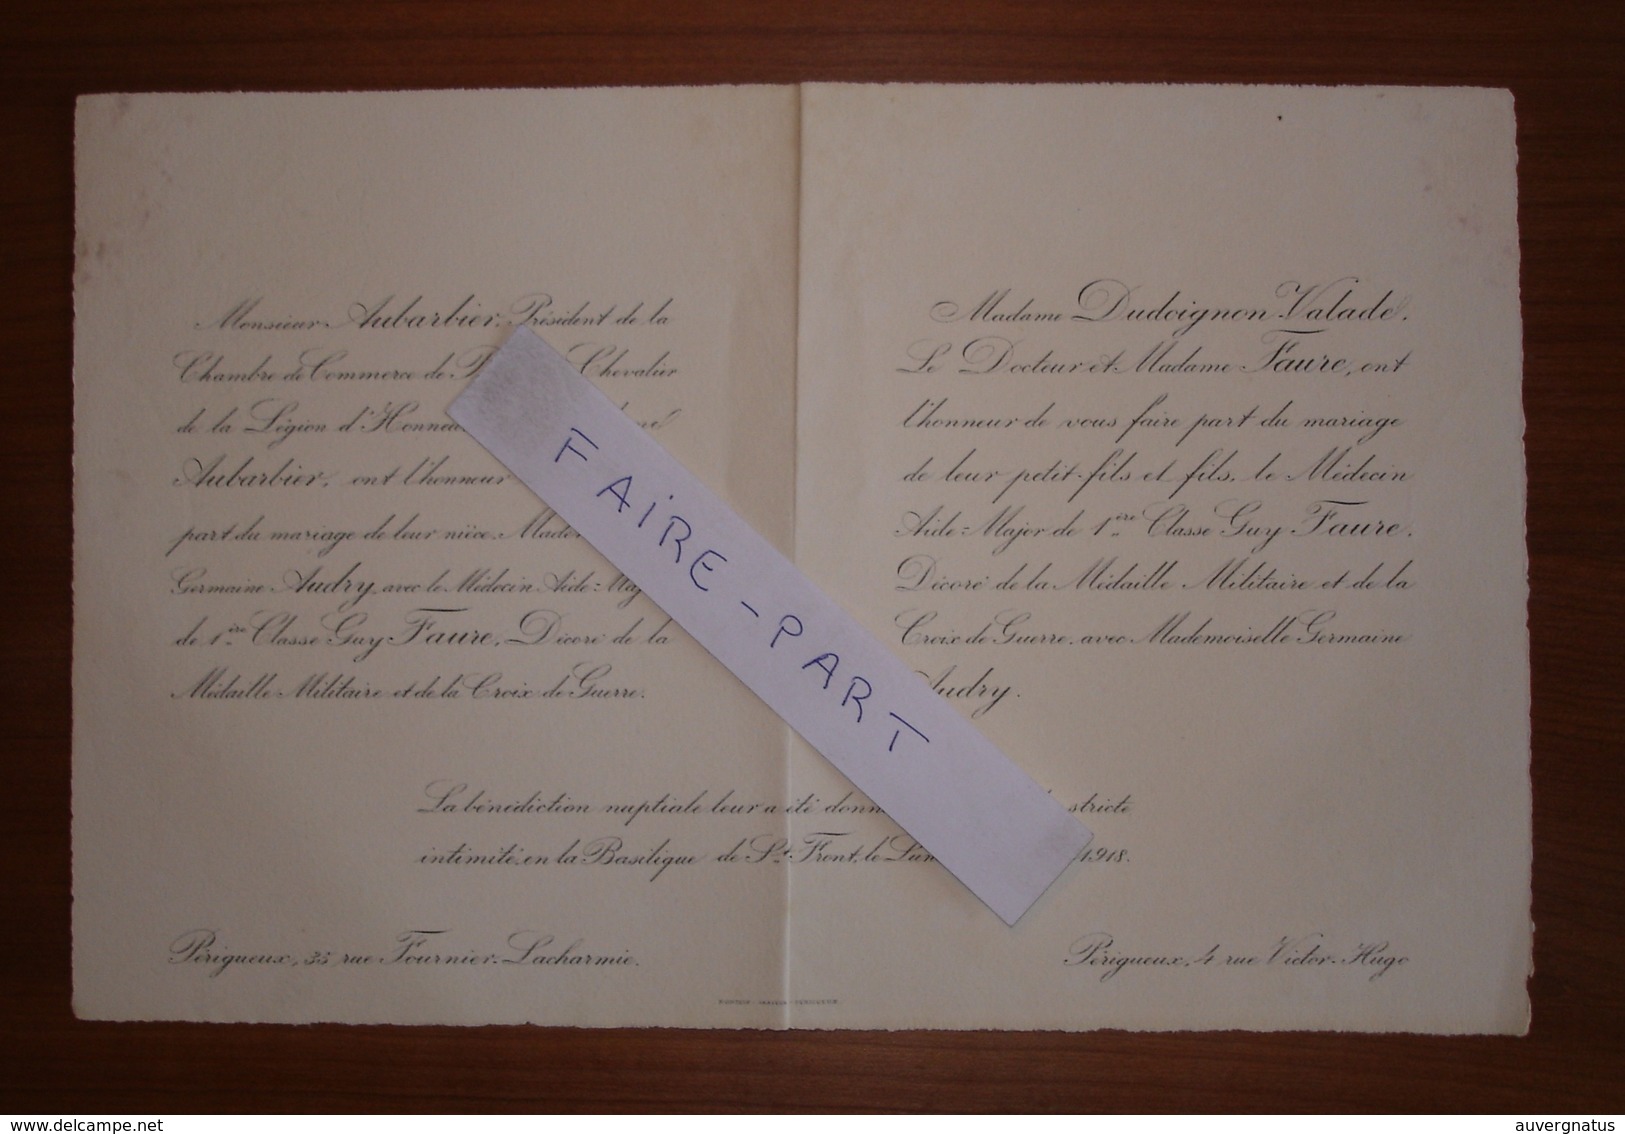 Monsieur Aubarbier, Président de la
Chambre de Commerce de Chevalier
de la Légion d'Honneur
Aubarbier, ont l'honneur
part du mariage de leur nièce, Made
Germaine Audry avec le Médecin Aide-Maj
de 1ère Classe Guy Faure, Décoré de la
Médaille Militaire et de la Croix de Guerre.
Madame Dudoignon-Valade,
Le Docteur et Madame Faure, ont
l'honneur de vous faire part du mariage
de leur petit-fils et fils, le Médecin
Aide-Major de 1ère Classe Guy Faure,
Décoré de la Médaille Militaire et de la
Croix de Guerre, avec Mademoiselle Germaine
Audry.
FAIRE-PART
La bénédiction nuptiale leur a été donn stricte
intimité, en la Basilique de St-Front, le Lun 1918.
Périgueux, 35 rue Fournier-Lacharmie.
Périgueux, 4 rue Victor-Hugo
www.delcampe.net
auvergnatus